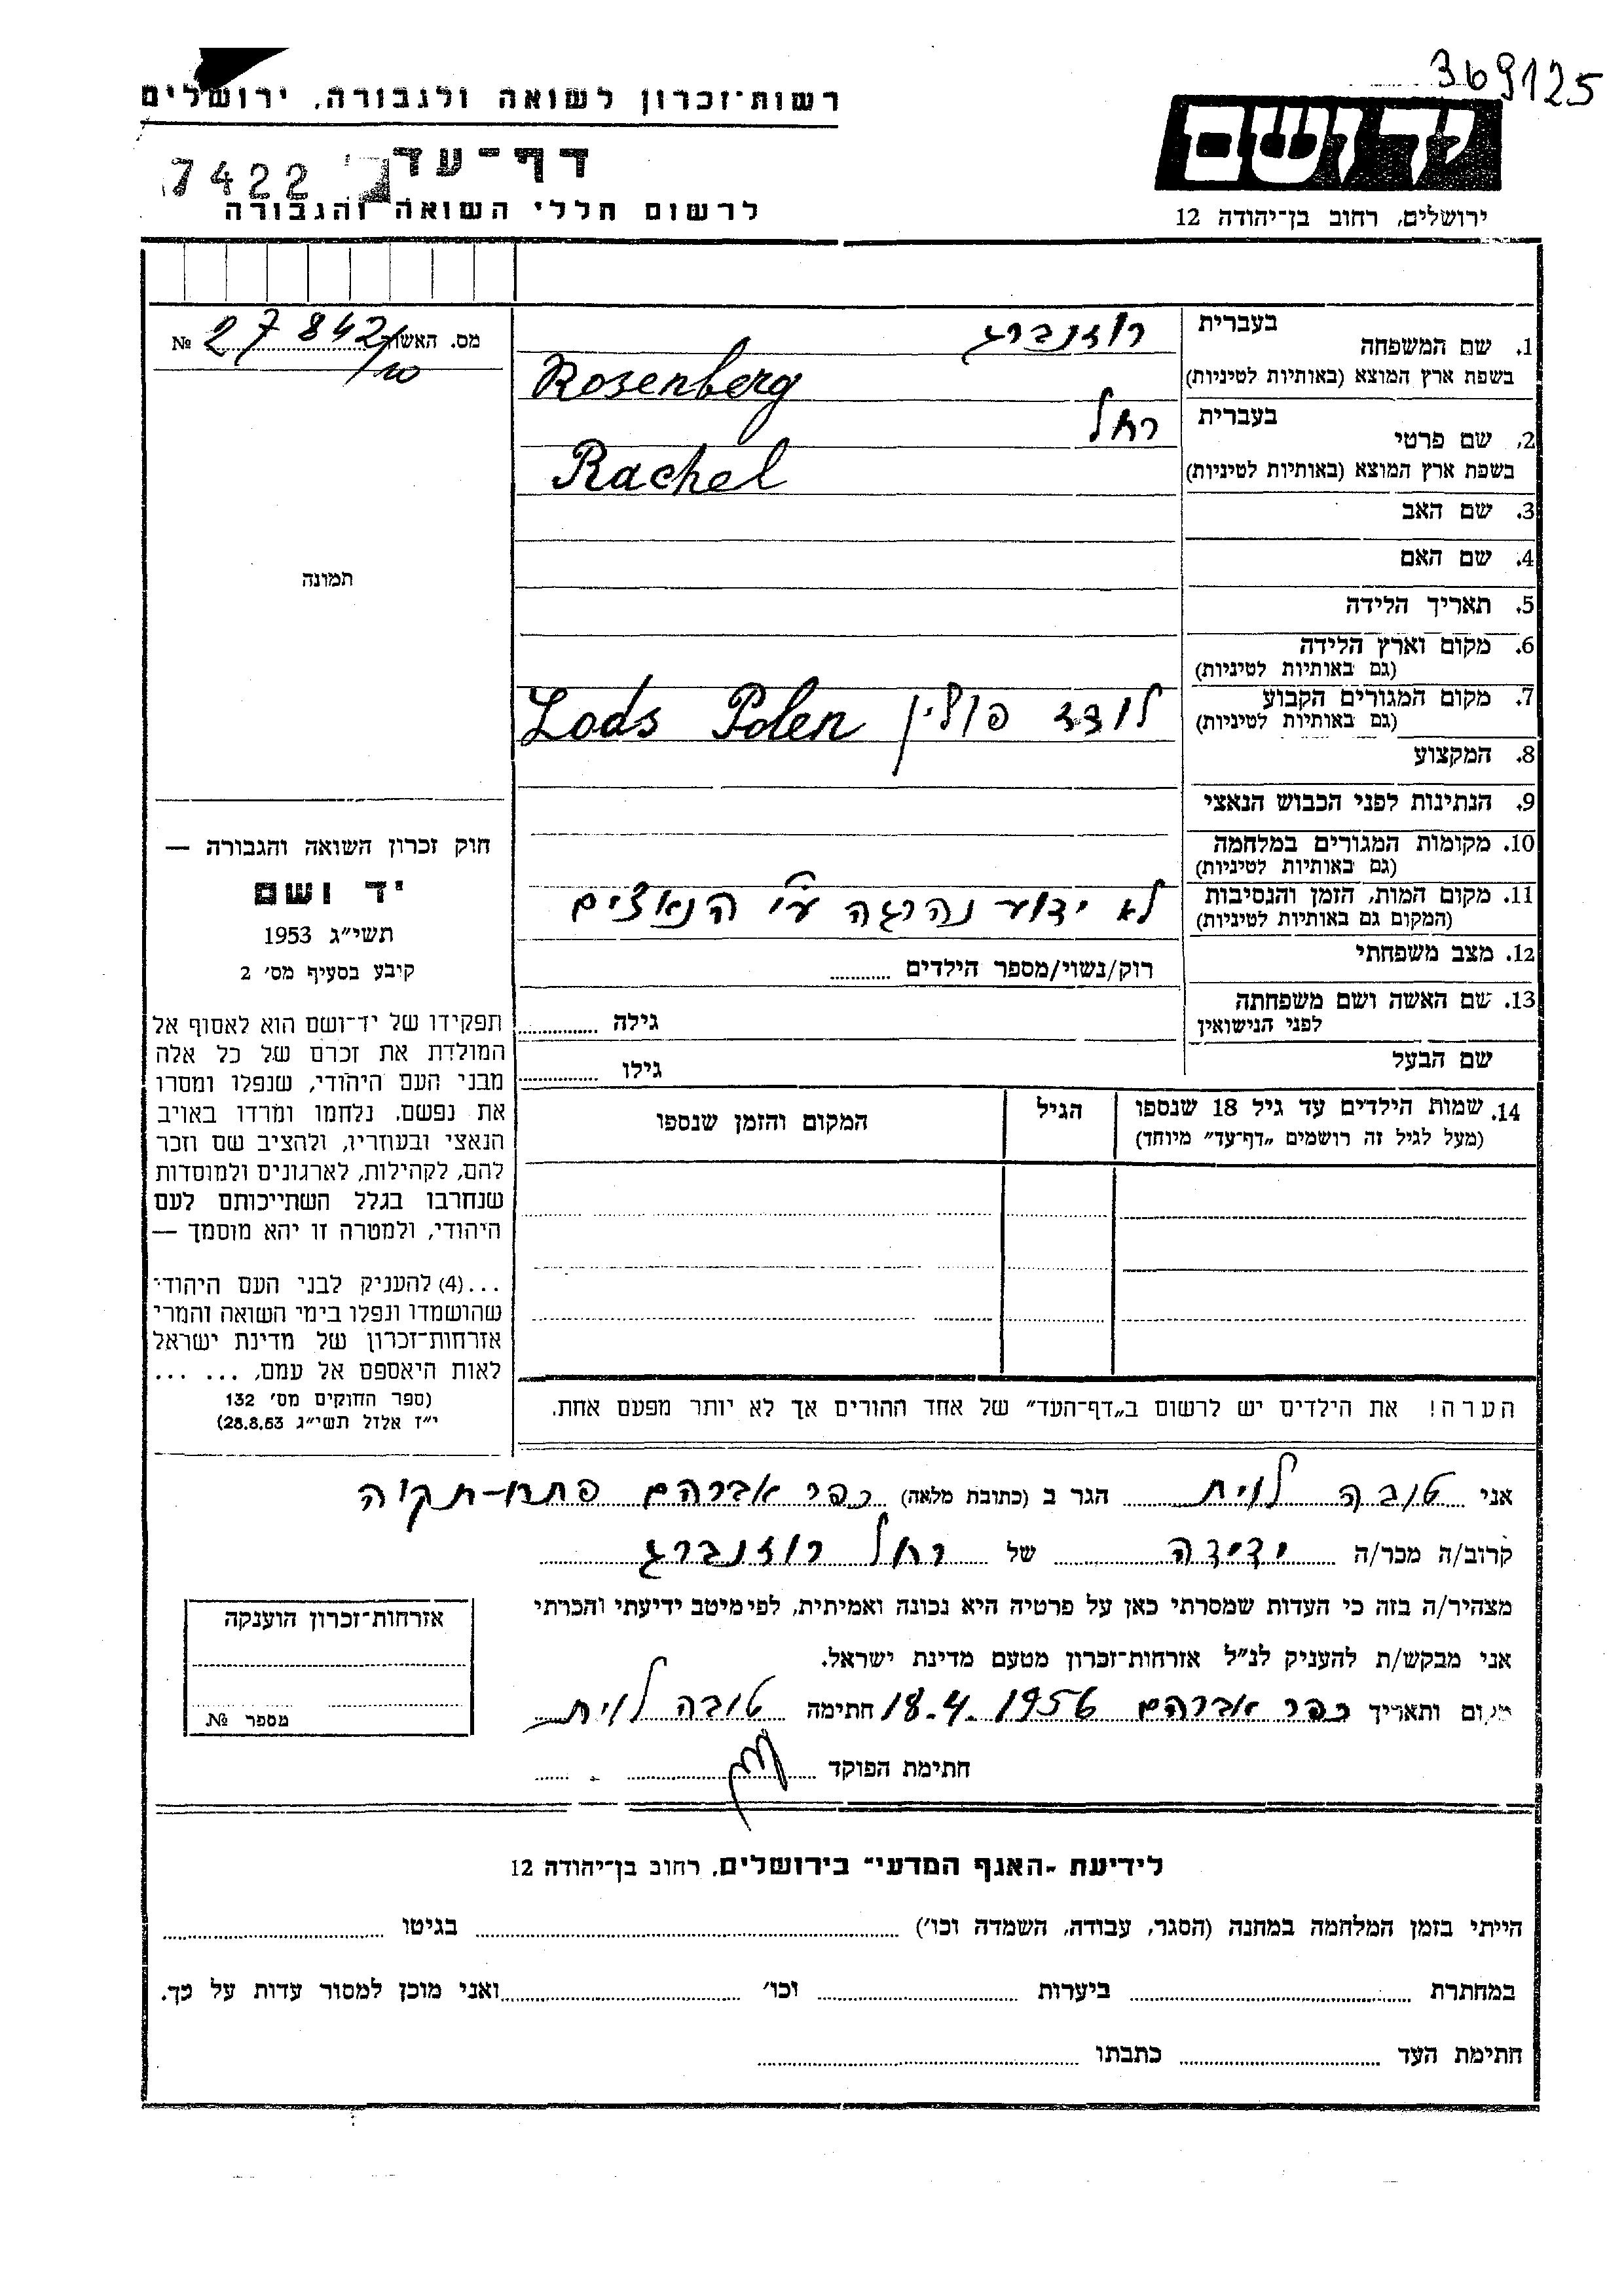 369125
רשות־זכרון לשואה ולגבורה, ירושלים
יד ושם
דף־עד
7422
לרשום חללי השואה והגבורה
ירושלים, רחוב בן־יהודה 12
1. שם המשפחה בעברית רוזנברג
בשפת ארץ המוצא (באותיות לטיניות) Rosenberg
מס. האשור 27842/10 №
2. שם פרטי בעברית רחל
בשפת ארץ המוצא (באותיות לטיניות) Rachel
3. שם האב
4. שם האם
תמונה
5. תאריך הלידה
6. מקום וארץ הלידה
(גם באותיות לטיניות)
7. מקום המגורים הקבוע לודז פולין Lods Polen
(גם באותיות לטיניות)
8. המקצוע
9. הנתינות לפני הכבוש הנאצי
10. מקומות המגורים במלחמה
(גם באותיות לטיניות)
11. מקום המות, הזמן והנסיבות לא ידוע נהרגה ע״י הנאצים
(המקום גם באותיות לטיניות)
12. מצב משפחתי רוק/נשוי/מספר הילדים
13. שם האשה ושם משפחתה
לפני הנישואין גילה
שם הבעל גילו
14. שמות הילדים עד גיל 18 שנספו
(מעל לגיל זה רושמים „דף־עד” מיוחד)
הגיל
המקום והזמן שנספו
חוק זכרון השואה והגבורה —
יד ושם
תשי״ג 1953
קובע בסעיף מס׳ 2
תפקידו של יד־ושם הוא לאסוף אל
המולדת את זכרם של כל אלה
מבני העם היהודי, שנפלו ומסרו
את נפשם, נלחמו ומרדו באויב
הנאצי ובעוזריו, ולהציב שם וזכר
להם, לקהילות, לארגונים ולמוסדות
שנחרבו בגלל השתייכותם לעם
היהודי, ולמטרה זו יהא מוסמך —
...(4) להעניק לבני העם היהודי
שהושמדו ונפלו בימי השואה והמרי
אזרחות־זכרון של מדינת ישראל
לאות היאספם אל עמם, ... ...
(ספר החוקים מס׳ 132
י״ז אלול תשי״ג 28.8.53)
הערה! את הילדים יש לרשום ב„דף־העד” של אחד ההורים אך לא יותר מפעם אחת.
אני טובה לוית הגר ב (כתובת מלאה) כפר אברהם פתח-תקוה
קרוב/ה מכר/ה ידידה של רחל רוזנברג
מצהיר/ה בזה כי העדות שמסרתי כאן על פרטיה היא נכונה ואמיתית, לפי מיטב ידיעתי והכרתי
אני מבקש/ת להעניק לנ״ל אזרחות־זכרון מטעם מדינת ישראל.
מקום ותאריך כפר אברהם 18.4.1956 חתימה טובה לוית
חתימת הפוקד
אזרחות־זכרון הוענקה
מספר №
לידיעת „האגף המדעי” בירושלים, רחוב בן־יהודה 12
הייתי בזמן המלחמה במחנה (הסגר, עבודה, השמדה וכו׳) בגיטו
במחתרת ביערות וכו׳ ואני מוכן למסור עדות על כך.
חתימת העד כתבתו